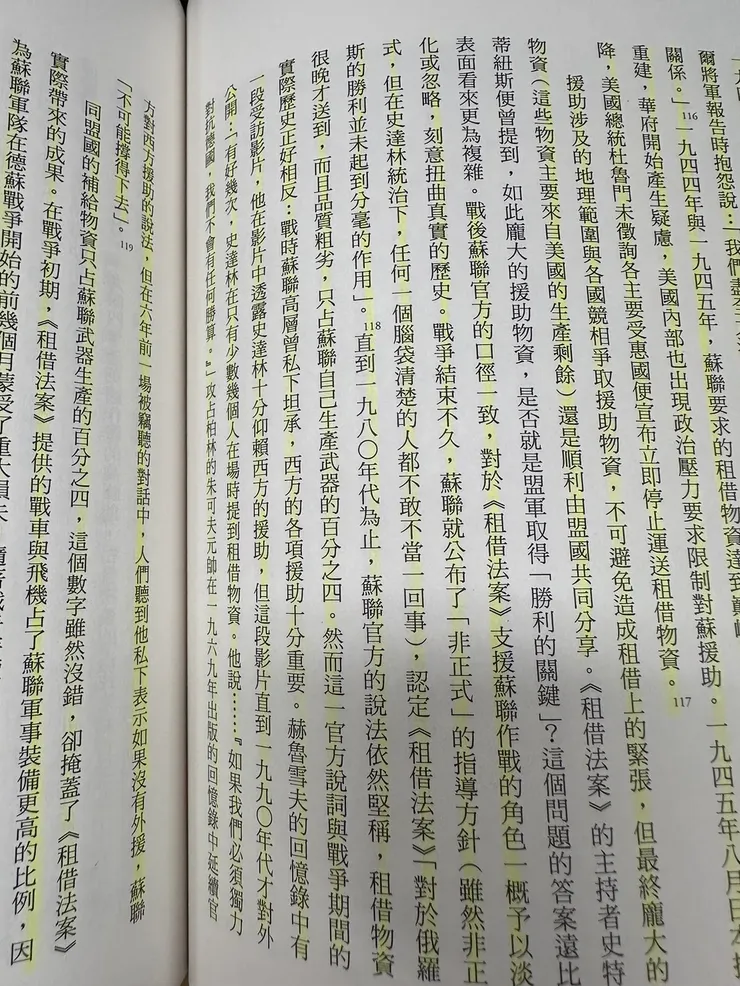 爾將軍報告時抱怨說：「我們盡
關係。」116一九四四年與一九四五年，蘇聯要求的租借物資達到巔
重建，華府開始產生疑慮，美國內部也出現政治壓力要求限制對蘇援助。一九四五年八月日本投
降，美國總統杜魯門未徵詢各主要受惠國便宣布立即停止運送租借物資。117
援助涉及的地理範圍與各國競相爭取援助物資，不可避免造成租借上的緊張，但最終龐大的
物資（這些物資主要來自美國的生產剩餘）還是順利由盟國共同分享。《租借法案》的主持者史特
蒂紐斯便曾提到，如此龐大的援助物資，是否就是盟軍取得「勝利的關鍵」？這個問題的答案遠比
表面看來更為複雜。戰後蘇聯官方的口徑一致，對於《租借法案》支援蘇聯作戰的角色一概予以淡
化或忽略，刻意扭曲真實的歷史。戰爭結束不久，蘇聯就公布了「非正式」的指導方針（雖然非正
式，但在史達林統治下，任何一個腦袋清楚的人都不敢不當一回事），認定《租借法案》「對於俄羅
斯的勝利並未起到分毫的作用」。118直到一九八〇年代為止，蘇聯官方的說法依然堅稱，租借物資
很晚才送到，而且品質粗劣，只占蘇聯自己生產武器的百分之四。然而這一官方說詞與戰爭期間的
實際歷史正好相反：戰時蘇聯高層曾私下坦承，西方的各項援助十分重要。赫魯雪夫的回憶錄中有
一段受訪影片，他在影片中透露史達林十分仰賴西方的援助，但這段影片直到一九九〇年代才對外
公開：「有好幾次，史達林在只有少數幾個人在場時提到租借物資。他說……『如果我們必須獨力
對抗德國，我們不會有任何勝算。』」攻占柏林的朱可夫元帥在一九六九年出版的回憶錄中延續官
方對西方援助的說法，但在六年前一場被竊聽的對話中，人們聽到他私下表示如果沒有外援，蘇聯
「不可能撐得下去」。119
同盟國的補給物資只占蘇聯武器生產的百分之四，這個數字雖然沒錯，卻掩蓋了《租借法案》
實際帶來的成果。在戰爭初期，《租借法案》提供的戰車與飛機占了蘇聯軍事裝備更高的比例，因
為蘇聯軍隊在德蘇戰爭開始的前幾個月蒙受了重大損失